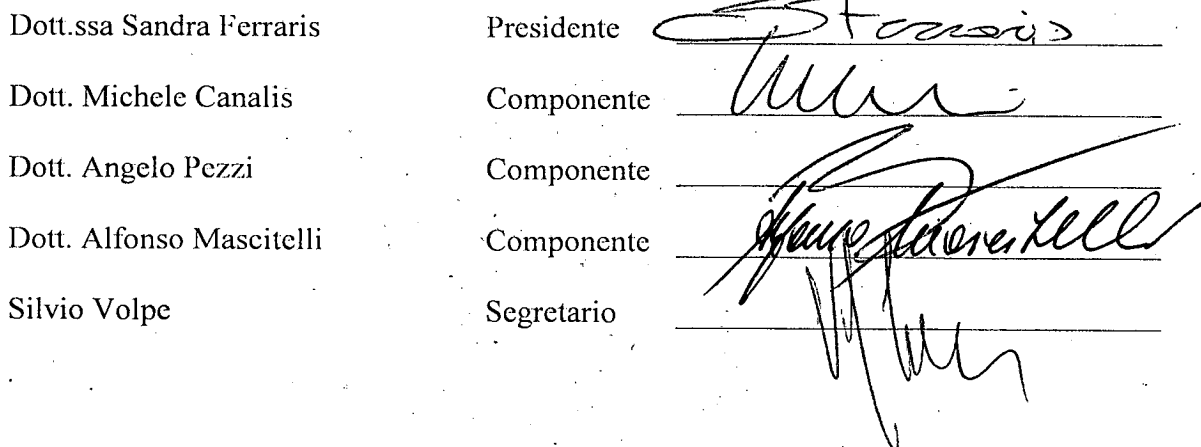 Dott.ssa Sandra Ferraris Presidente SFerraris
Dott. Michele Canalis Componente
Dott. Angelo Pezzi Componente
Dott. Alfonso Mascitelli Componente Alfonso Mascitelli
Silvio Volpe Segretario